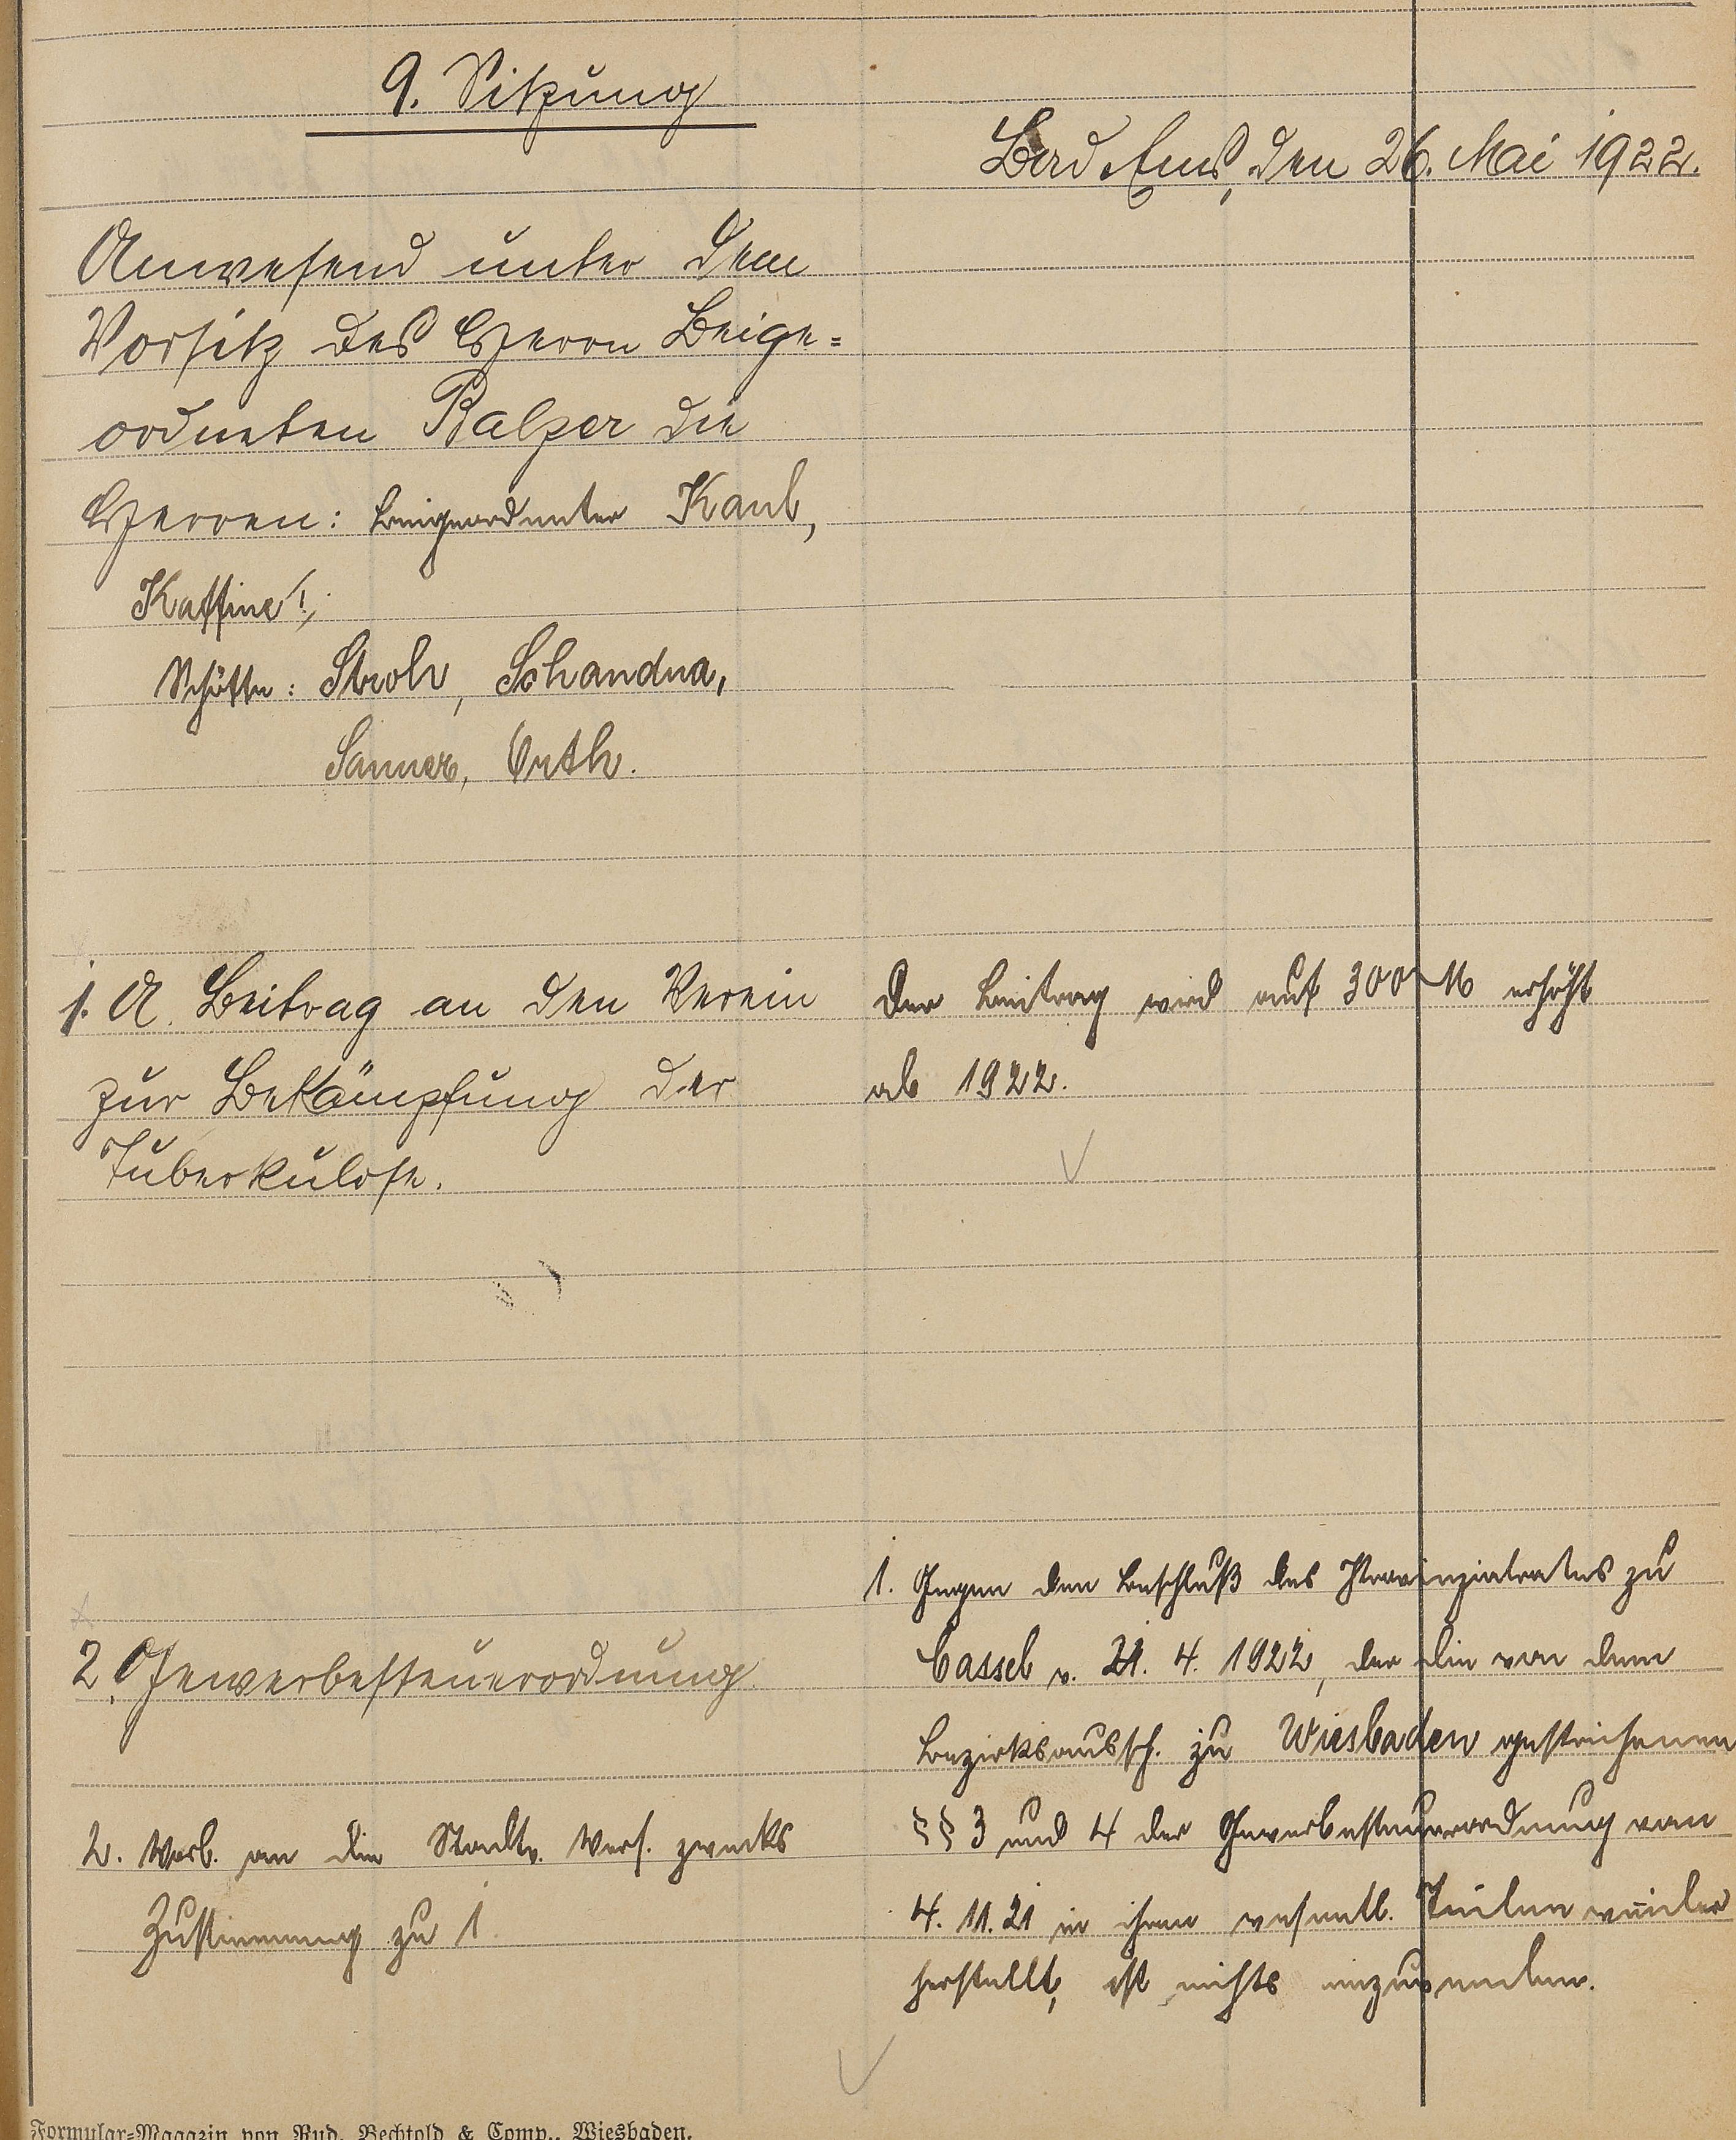 9. Sitzung
Bad Ems, den 26. Mai 1922.
Anwesend unter dem
Vorsitz des Herrn Beige=
ordneten Balzer die
Herren: Beigeordneter Kaul,
Schöffen: Stroh, Schandua,
Sanner, Orth.
1. A. Beitrag an den Verein
zur Bekämpfung der
Tuberkulose.
Der Beitrag wird auf 300 M erhöht
ab 1922.
2. Gewerbesteuerordnung.
2. Vorl. an die Stadtv. Vers. zwecks
Zustimmung zu 1.
1. Gegen den Beschluß des Provinzialrates zu
Cassel v. 21. 4. 1922, der die von dem
Bezirksaussch. zu Wiesbaden gestrichenen
§§ 3 und 4 der Gewerbesteuerordnung vom
4. 11. 21 in ihren wesentl. Teilen wieder
herstellt, ist nichts einzuwenden.
Formular=Magazin von Rud. Bechtold & Comp., Wiesbaden.